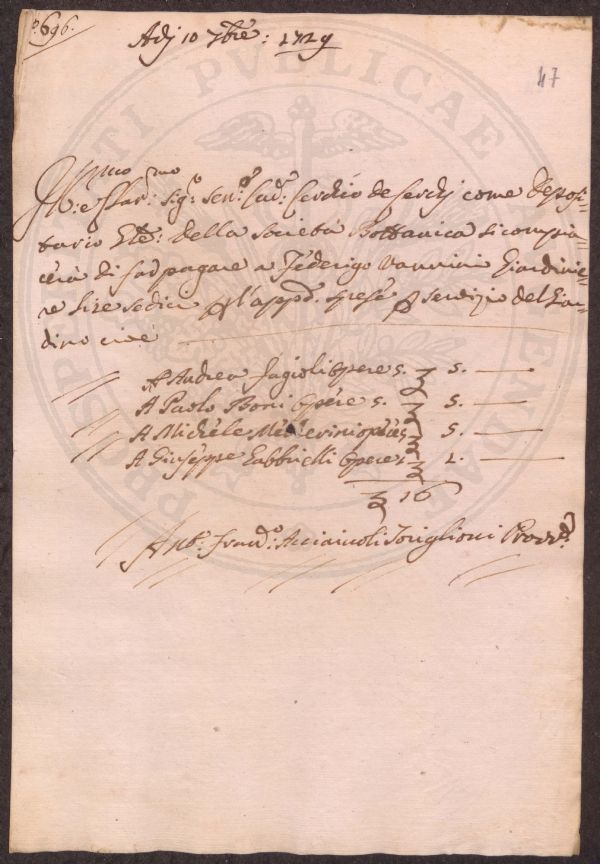 696.
Adj 10 7bre: 1729
47
Ill:mo e Clar:mo Sig:e Sen:e Cav: Cerchio de Cerchj come Deposi=
tario Gle: della Società Bottanica si compia=
cerà di far pagare a Federigo Vannini Giardinie=
re lire sedici p l'app: spese p servizio del Giar=
dino cioè
A Andrea Fagioli Opere 5. 5.
A Paolo Boni Opere 5. 5.
A Michele Opere 5 5.
A Giuseppe Gabbrielli Opere 1 1.
16
Ant: Franc:o Acciaiuoli Toriglioni Provv:e
PROSPERITATI PVBLICAE AVGENDAE